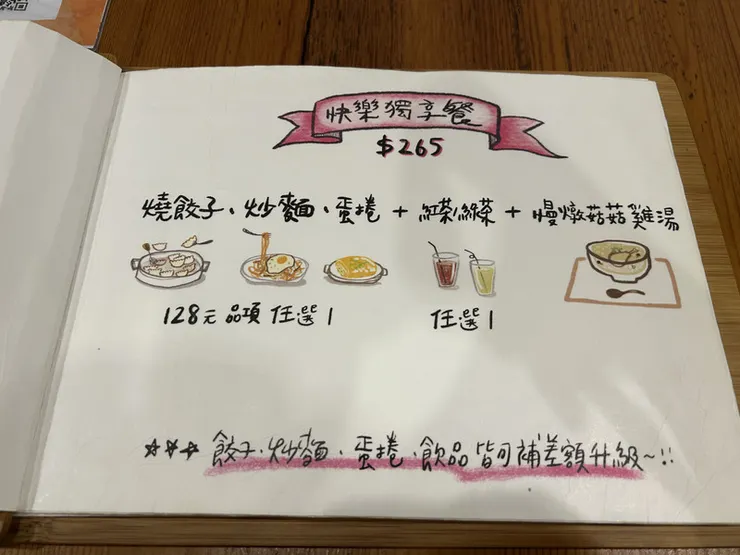 快樂獨享餐
$265
燒餃子、炒麵、蛋捲 + 紅茶/綠茶 + 慢燉菇菇雞湯
128元 品項 任選1
任選1
*** 餃子、炒麵、蛋捲、飲品 皆可補差額升級~!!